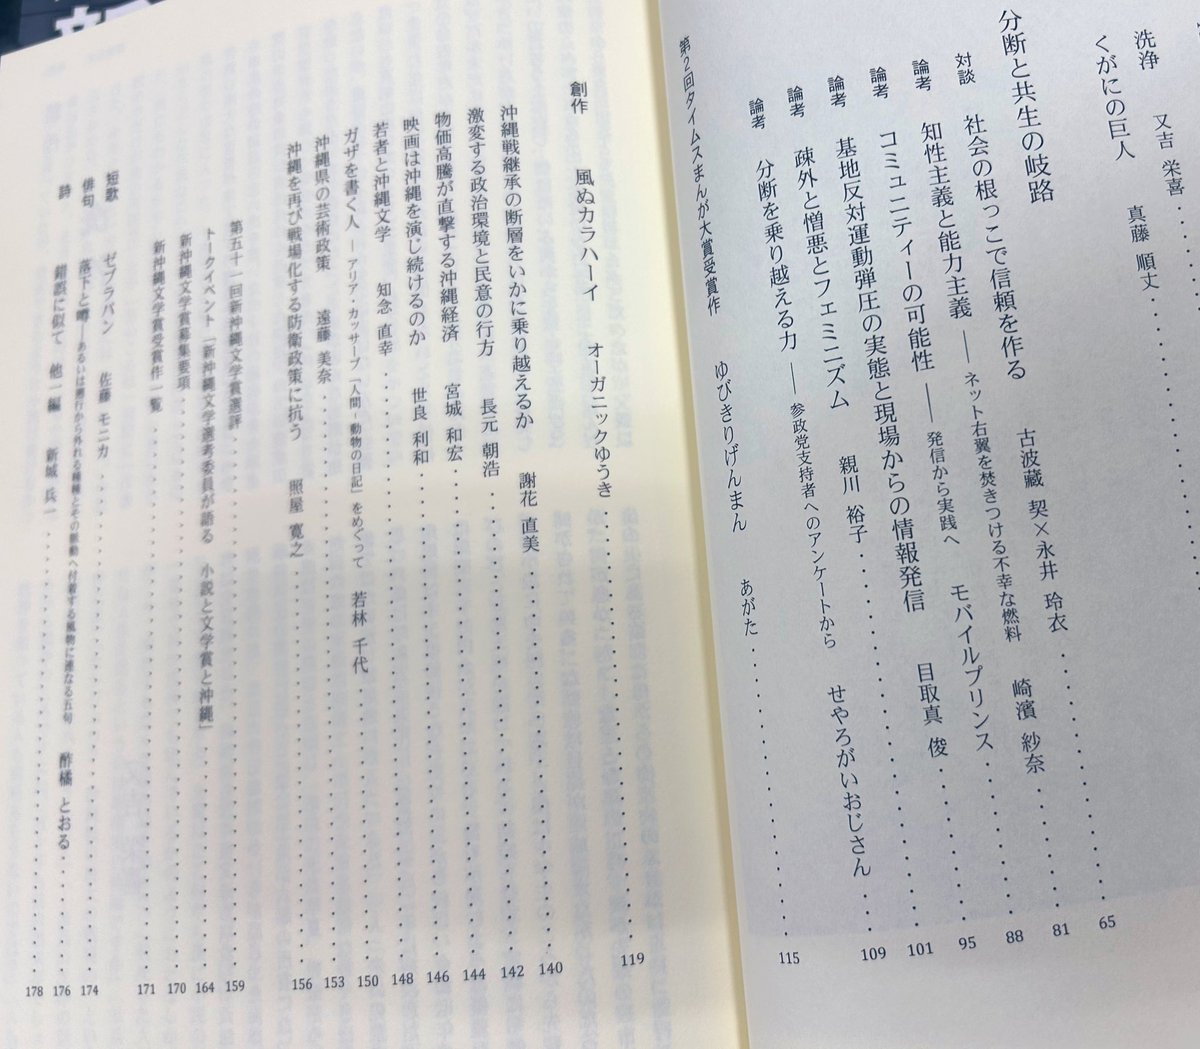 洗浄 又吉 栄喜
くがにの巨人 真藤 順丈
分断と共生の岐路
対談 社会の根っこで信頼を作る 古波藏 契×永井 玲衣 65
論考 知性主義と能力主義 ―― ネット右翼を焚きつける不幸な燃料 崎濱 紗奈 81
論考 コミュニティーの可能性 ―― 発信から実践へ モバイルプリンス 88
論考 基地反対運動弾圧の実態と現場からの情報発信 目取真 俊 95
論考 疎外と憎悪とフェミニズム 親川 裕子 101
論考 分断を乗り越える力 ―― 参政党支持者へのアンケートから せやろがいおじさん 109
第2回タイムスまんが大賞受賞作 ゆびきりげんまん あがた 115
創作 風ぬカラハーイ オーガニックゆうき 119
沖縄戦継承の断層をいかに乗り越えるか 謝花 直美 140
激変する政治環境と民意の行方 長元 朝浩 142
物価高騰が直撃する沖縄経済 宮城 和宏 144
映画は沖縄を演じ続けるのか 世良 利和 146
若者と沖縄文学 知念 直幸 148
ガザを書く人 ― アリア・カッサーブ「人間‐動物の日記」をめぐって 若林 千代 150
沖縄県の芸術政策 遠藤 美奈 153
沖縄を再び戦場化する防衛政策に抗う 照屋 寛之 156
第五十一回新沖縄文学賞選評 159
トークイベント「新沖縄文学選考委員が語る 小説と文学賞と沖縄」 164
新沖縄文学賞募集要項 170
新沖縄文学賞受賞作一覧 171
短歌 ゼブラパン 佐藤 モニカ 174
俳句 落下と噂―あるいは運行から外れる種種とその振動へ付着する風物に連なる五句 酢橘 とおる 176
詩 錯誤に似て 他一編 新城 兵一 178